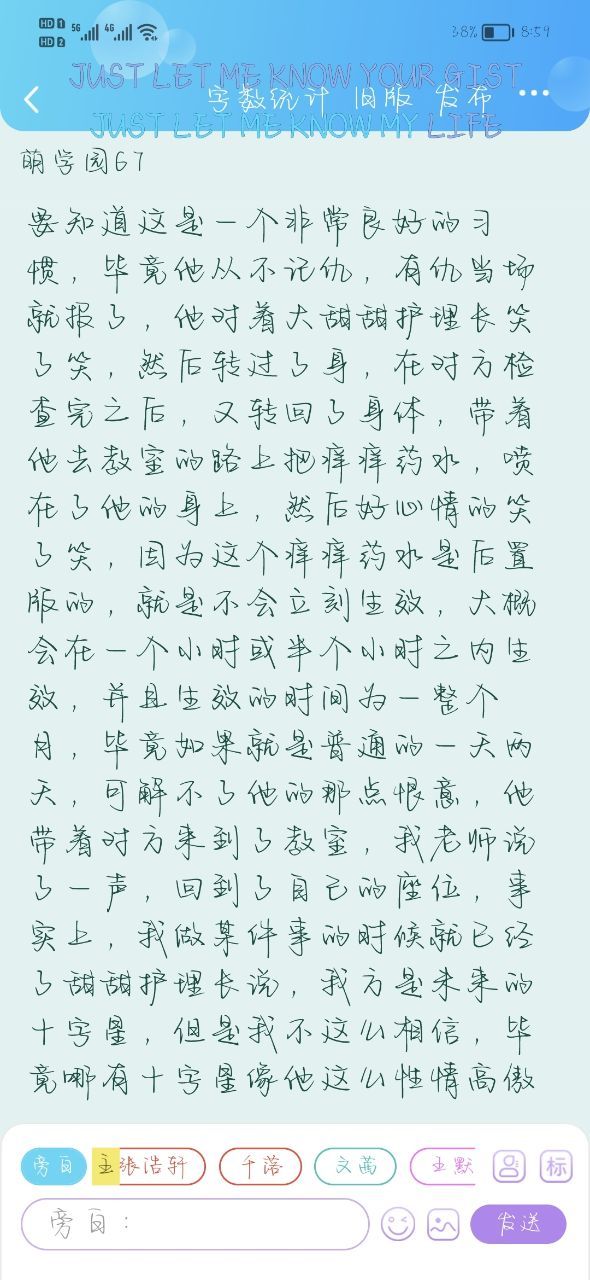 HD 1 5G 4G 38% 8:59
HD 2
JUST LET ME KNOW YOUR GIST
字数统计 旧版 发布 ...
JUST LET ME KNOW MY LIFE
萌学园67
要知道这是一个非常良好的习
惯，毕竟他从不记仇，有仇当场
就报了，他对着大甜甜护理长笑
了笑，然后转过了身，在对方检
查完之后，又转回了身体，带着
他去教室的路上把痒痒药水，喷
在了他的身上，然后好心情的笑
了笑，因为这个痒痒药水是后置
版的，就是不会立刻生效，大概
会在一个小时或半个小时之内生
效，并且生效的时间为一整个
月，毕竟如果就是普通的一天两
天，可解不了他的那点恨意，他
带着对方来到了教室，我老师说
了一声，回到了自己的座位，事
实上，我做某件事的时候就已经
了甜甜护理长说，我方是未来的
十字星，但是我不这么相信，毕
竟哪有十字星像他这么性情高傲
旁白 主张浩轩 千落 文茜 王默 标
旁白： 发送